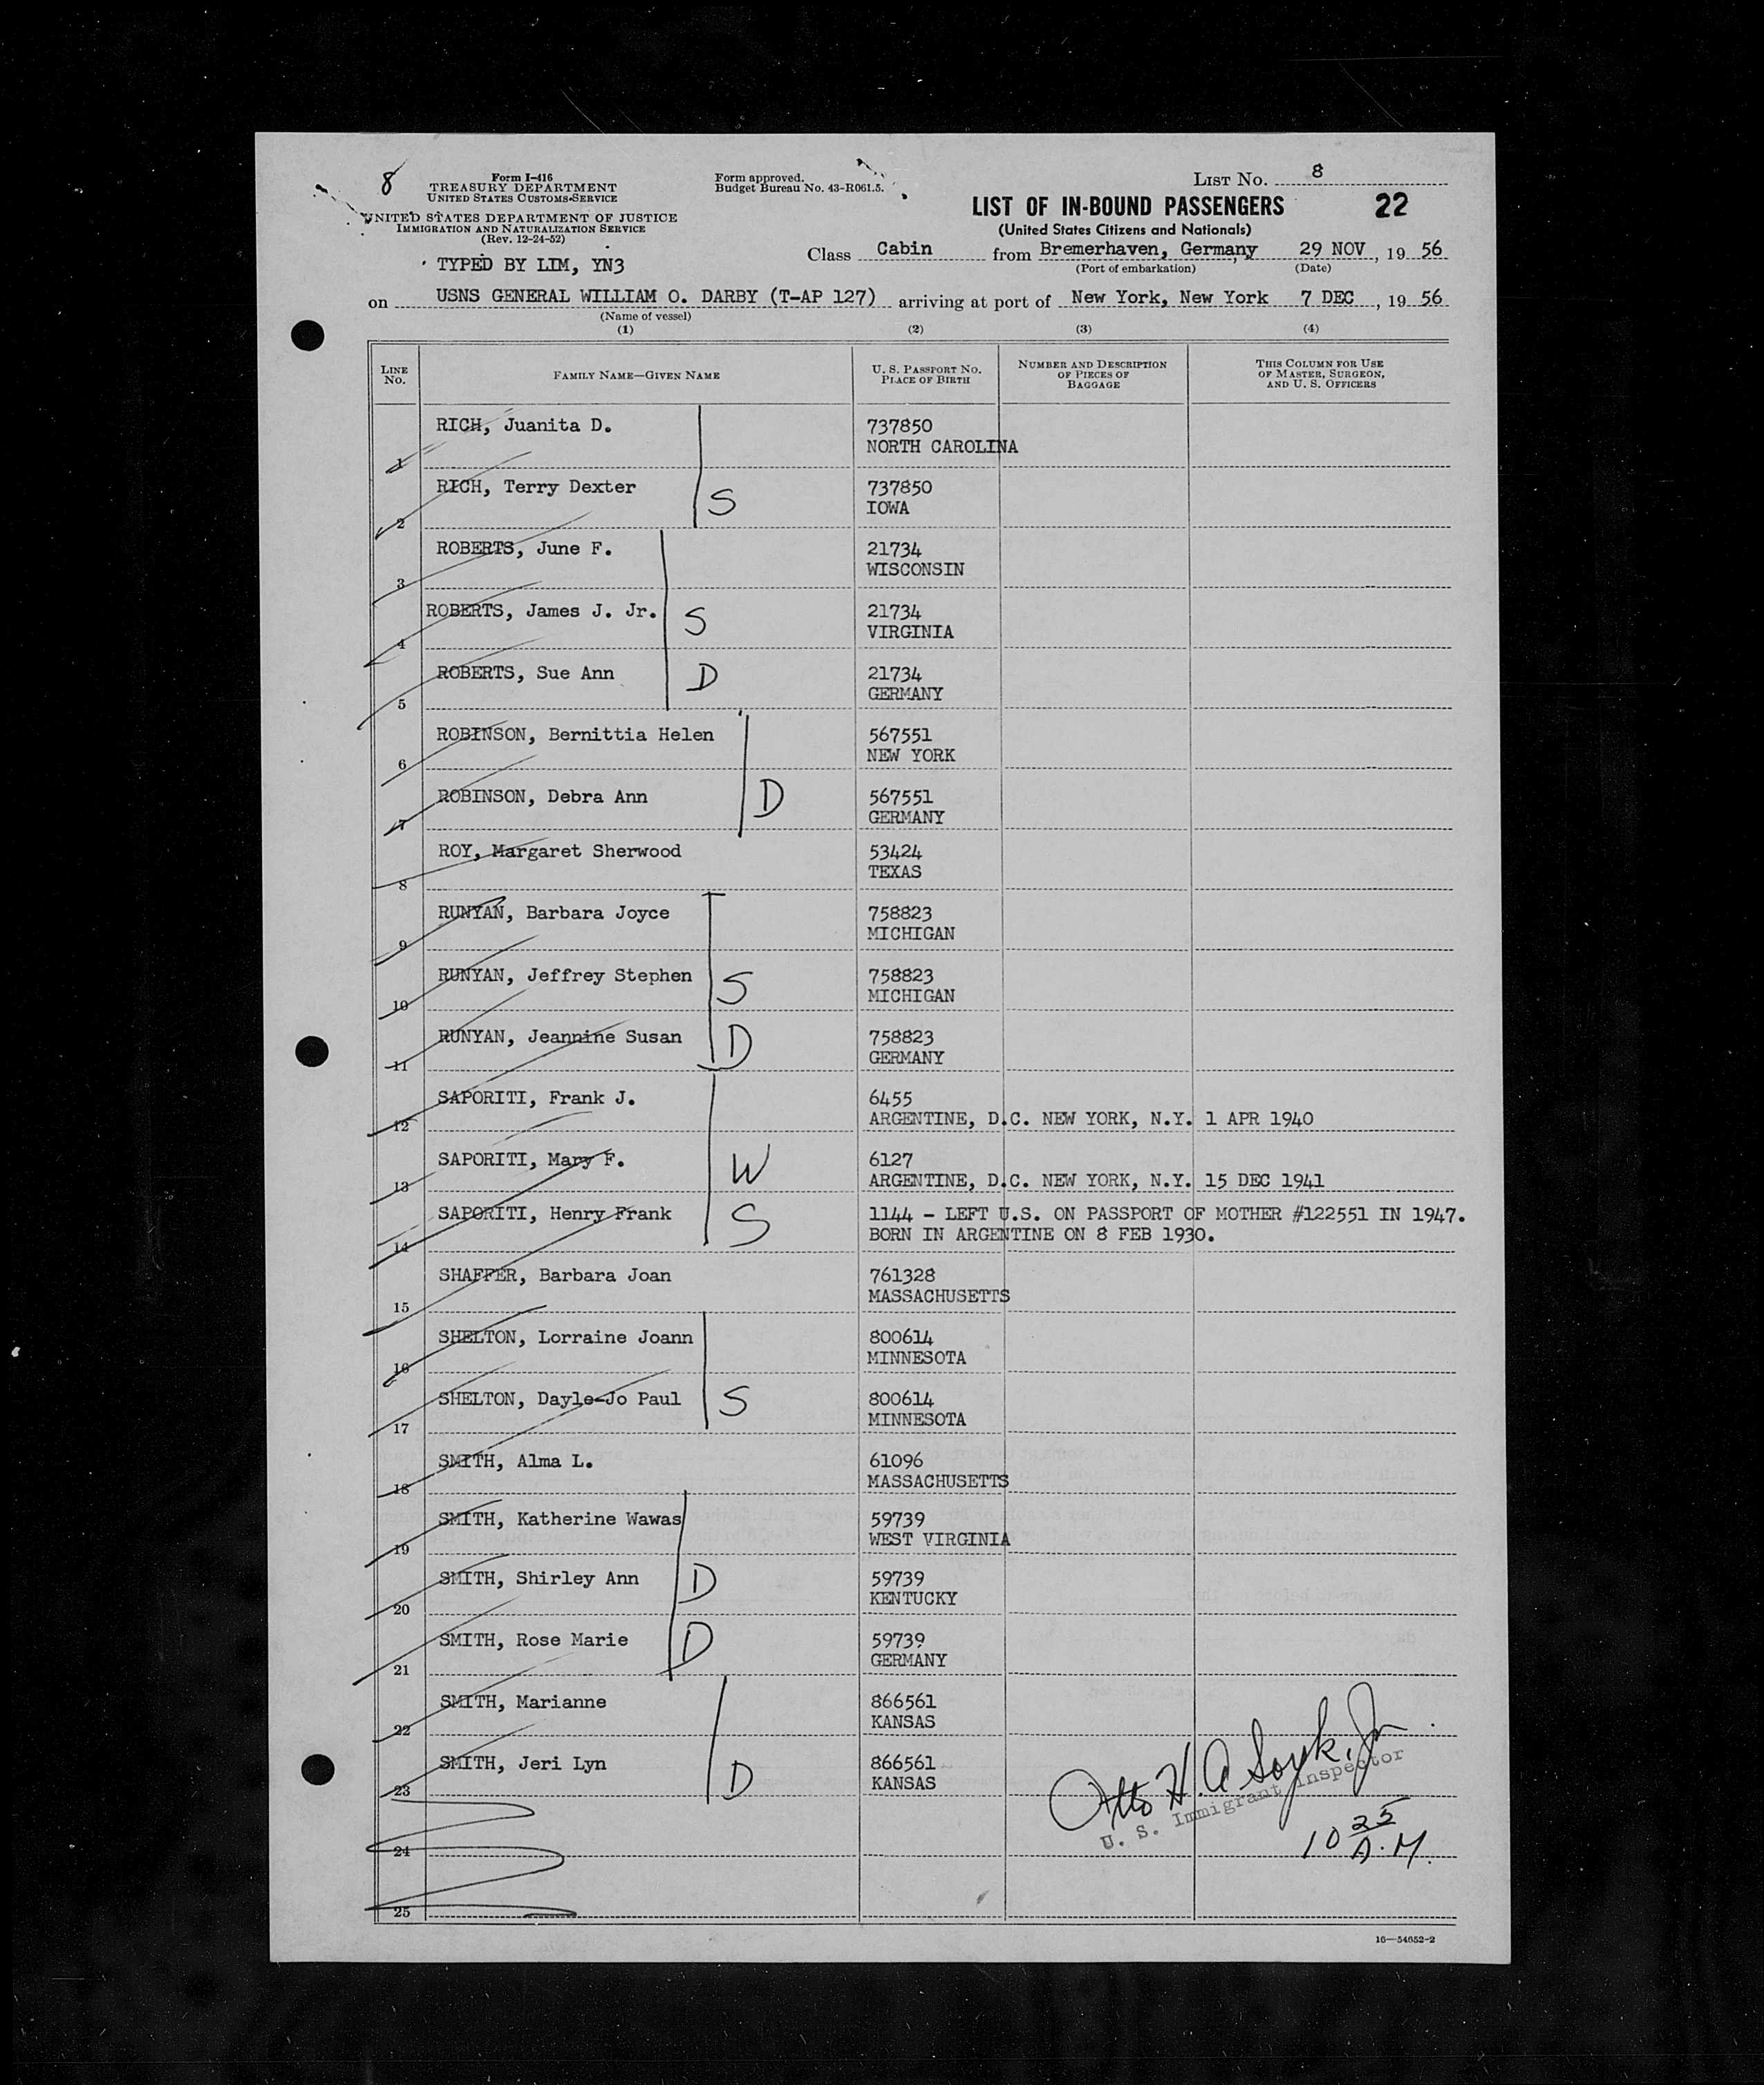 8
Form I-416
TREASURY DEPARTMENT
UNITED STATES CUSTOMS SERVICE
UNITED STATES DEPARTMENT OF JUSTICE
IMMIGRATION AND NATURALIZATION SERVICE
(Rev. 12-24-52)
TYPED BY LIM, YN3
Form approved.
Budget Bureau No. 43-R061.5.
LIST NO. 8
LIST OF IN-BOUND PASSENGERS 22
(United States Citizens and Nationals)
Class Cabin from Bremerhaven, Germany 29 NOV, 19 56
(Port of embarkation) (Date)
on USNS GENERAL WILLIAM O. DARBY (T-AP 127) arriving at port of New York, New York 7 DEC, 19 56
(Name of vessel)
(1) (2) (3) (4)
LINE NO. FAMILY NAME—GIVEN NAME U. S. PASSPORT NO. PLACE OF BIRTH NUMBER AND DESCRIPTION OF PIECES OF BAGGAGE THIS COLUMN FOR USE OF MASTER, SURGEON, AND U. S. OFFICERS
RICH, Juanita D. 737850
1 NORTH CAROLINA
RICH, Terry Dexter S 737850
2 IOWA
ROBERTS, June F. 21734
3 WISCONSIN
ROBERTS, James J. Jr. S 21734
4 VIRGINIA
ROBERTS, Sue Ann D 21734
5 GERMANY
ROBINSON, Bernittia Helen 567551
6 NEW YORK
ROBINSON, Debra Ann D 567551
7 GERMANY
ROY, Margaret Sherwood 53424
8 TEXAS
RUNYAN, Barbara Joyce 758823
9 MICHIGAN
RUNYAN, Jeffrey Stephen S 758823
10 MICHIGAN
RUNYAN, Jeannine Susan D 758823
11 GERMANY
SAPORITI, Frank J. 6455
12 ARGENTINE, D.C. NEW YORK, N.Y. 1 APR 1940
SAPORITI, Mary F. W 6127
13 ARGENTINE, D.C. NEW YORK, N.Y. 15 DEC 1941
SAPORITI, Henry Frank S 1144 - LEFT U.S. ON PASSPORT OF MOTHER #122551 IN 1947.
14 BORN IN ARGENTINE ON 8 FEB 1930.
SHAFFER, Barbara Joan 761328
15 MASSACHUSETTS
SHELTON, Lorraine Joann 800614
16 MINNESOTA
SHELTON, Dayle-Jo Paul S 800614
17 MINNESOTA
SMITH, Alma L. 61096
18 MASSACHUSETTS
SMITH, Katherine Wawas 59739
19 WEST VIRGINIA
SMITH, Shirley Ann D 59739
20 KENTUCKY
SMITH, Rose Marie D 59739
21 GERMANY
SMITH, Marianne 866561
22 KANSAS
SMITH, Jeri Lyn D 866561
23 KANSAS
Otto H. A. Soyk, Jr.
U. S. Immigrant Inspector
24 10 25 A.M.
25
16—54652-2